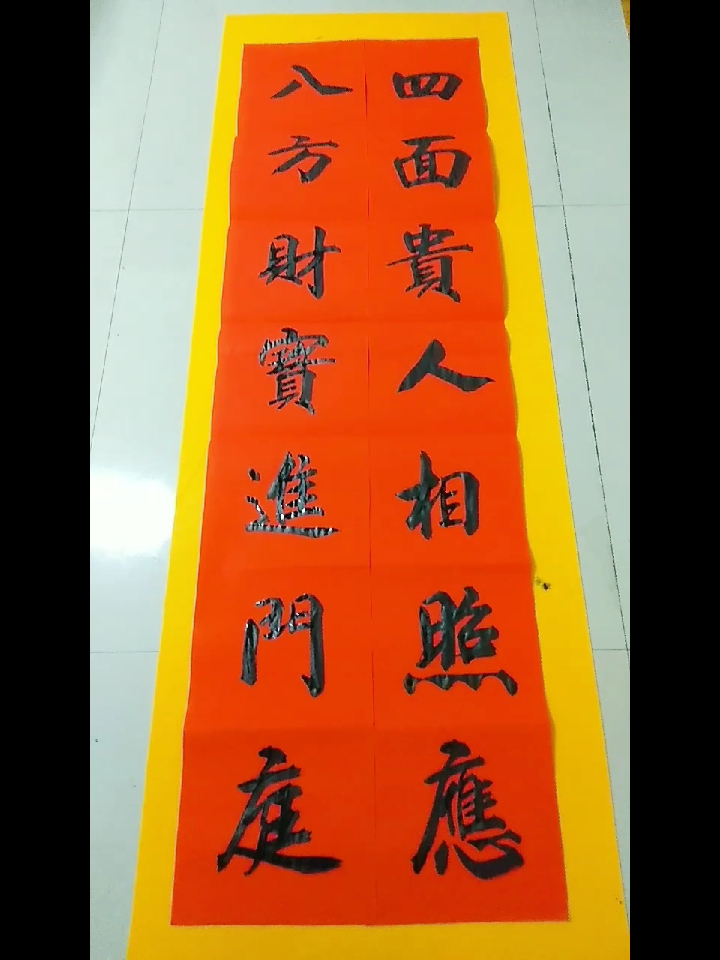 四面貴人相照應
八方財寶進門庭